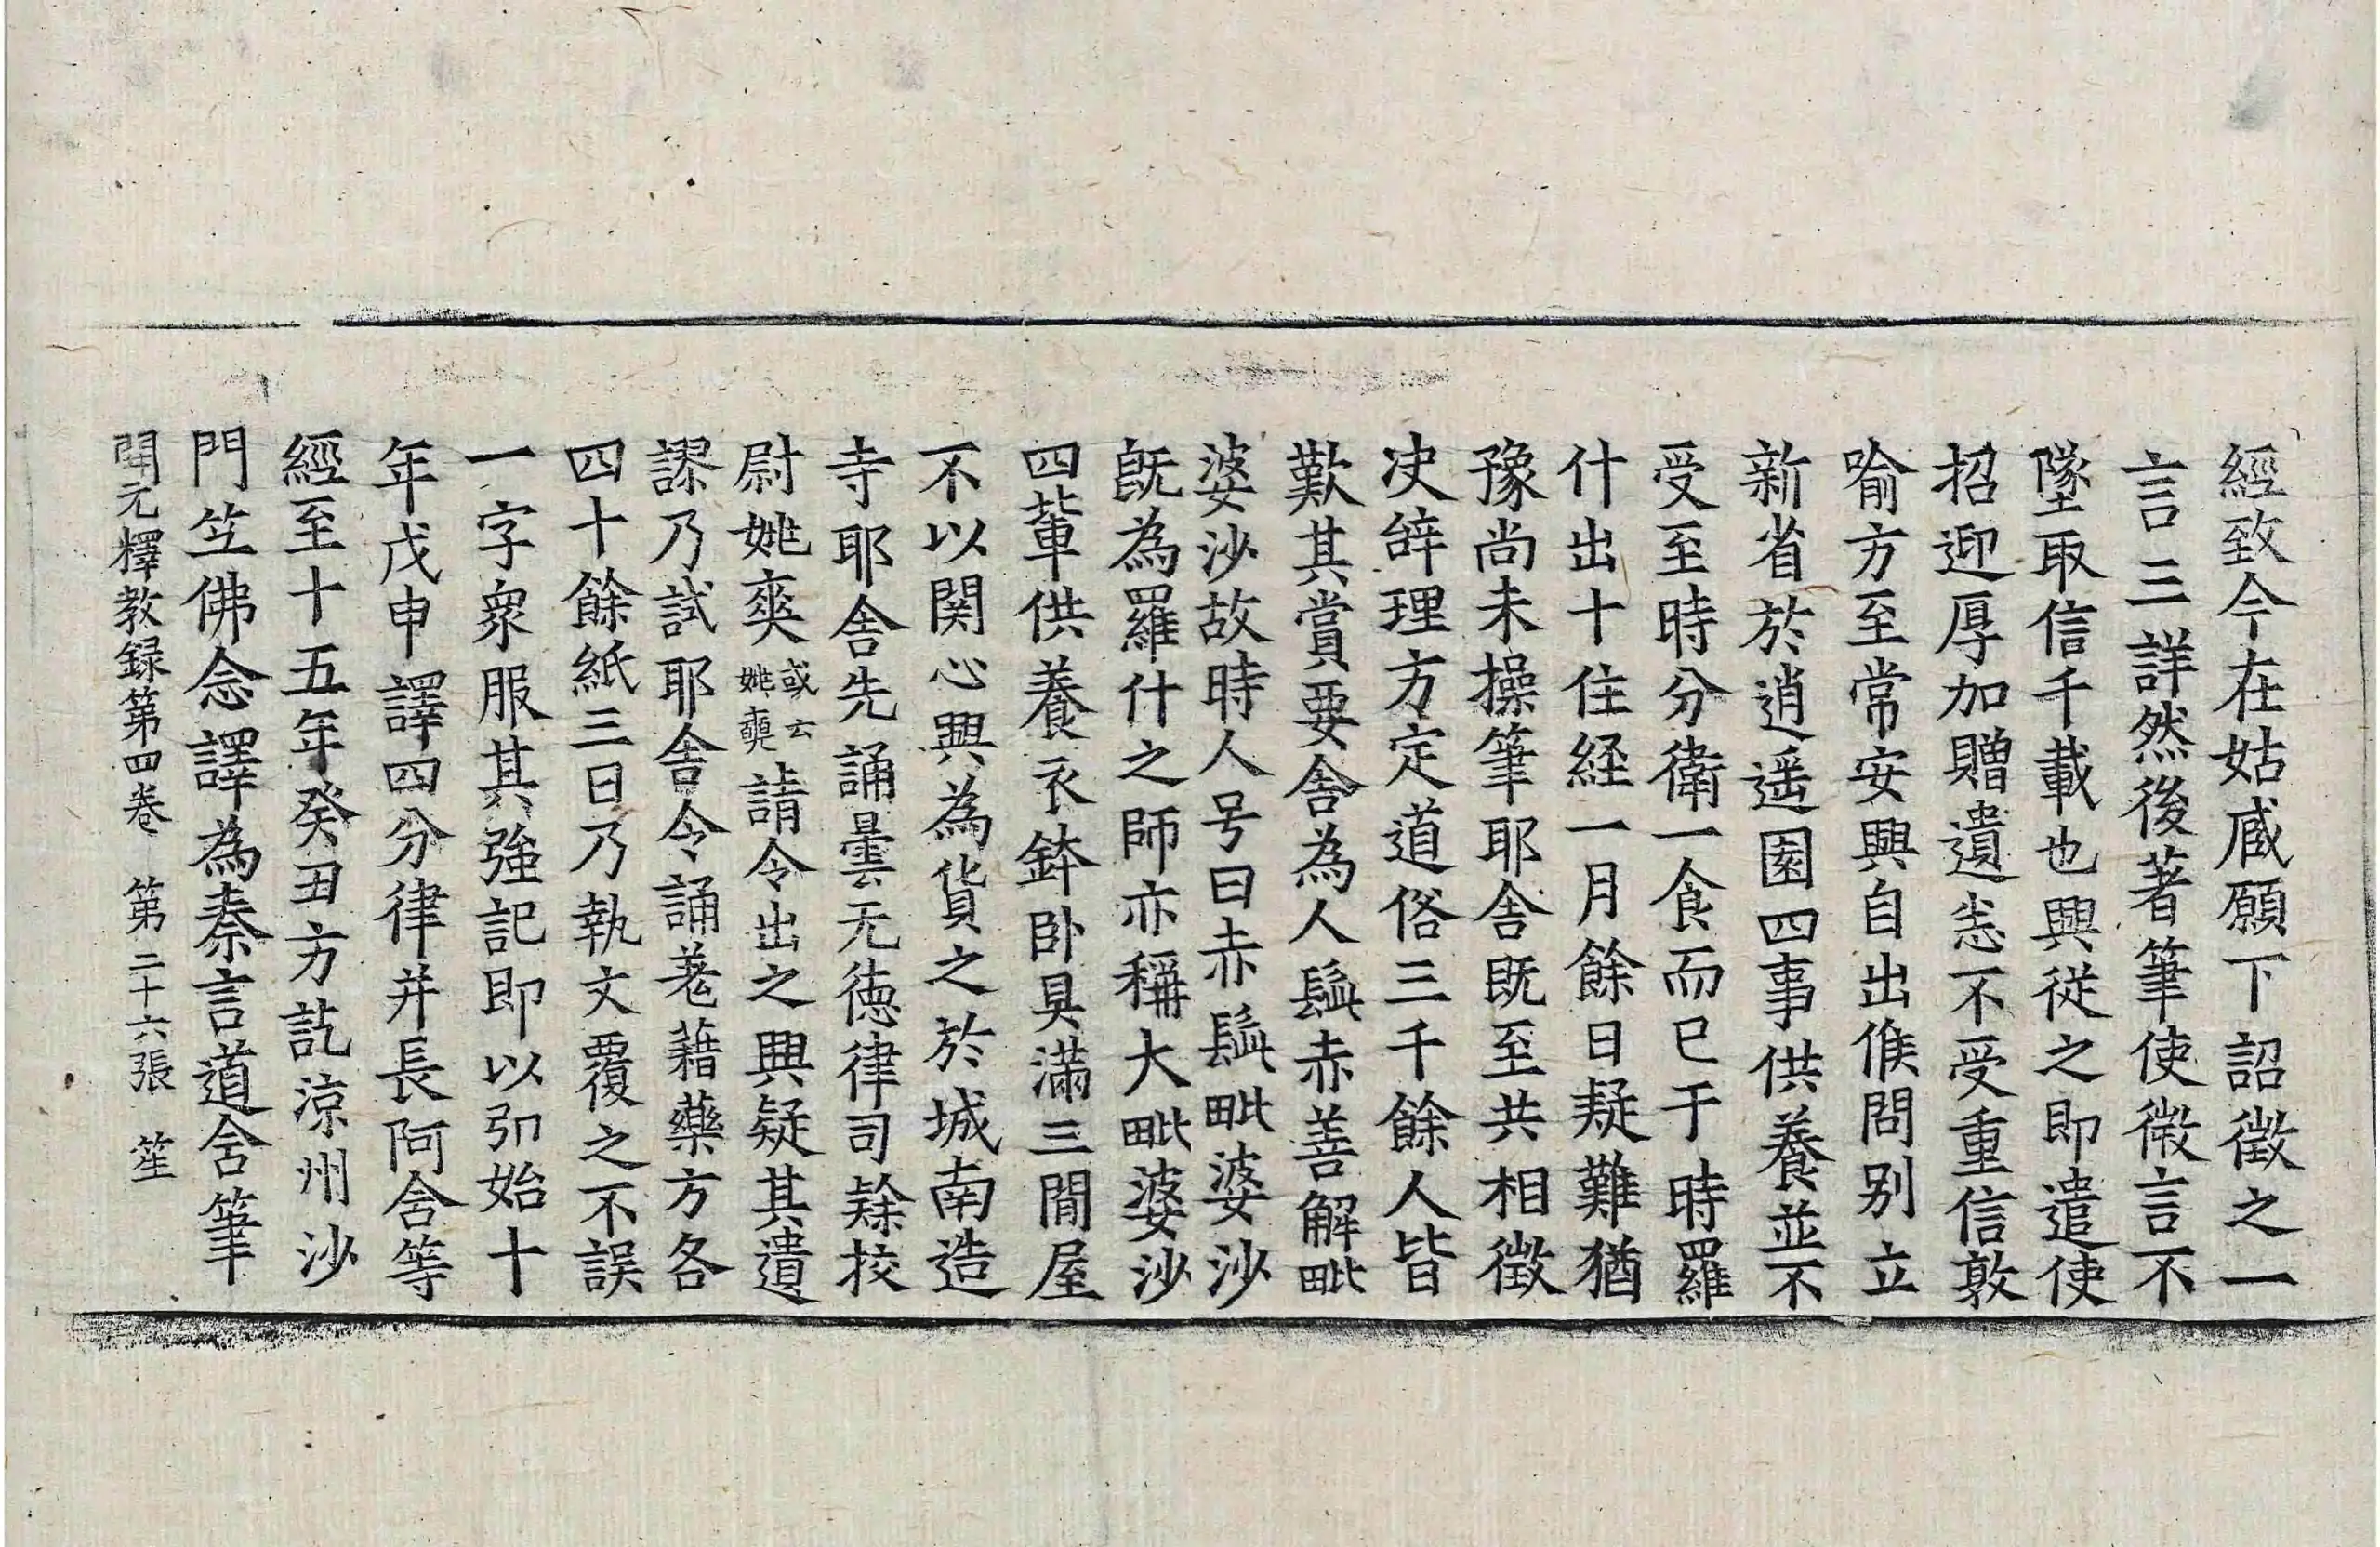 經致今在姑臧願下詔徵之一
言三詳然後著筆使微言不
墜取信千載也興從之即遣使
招迎厚加贈遺悉不受重信敦
喻方至常安興自出候問別立
新省於逍遥園四事供養並不
受至時分衛一食而已于時羅
什出十住経一月餘日疑難猶
豫尚未操筆耶舍既至共相徵
决辝理方定道俗三千餘人皆
歎其賞要舍為人髭赤善解毗
婆沙故時人号曰赤髭毗婆沙
既為羅什之師亦稱大毗婆沙
四輩供養衣鉢卧具滿三間屋
不以関心興為貨之於城南造
寺耶舍先誦曇无德律司隸校
尉姚爽或云姚奭請令出之興疑其遺
謬乃試耶舍令誦羗藉藥方各
四十餘紙三日乃執文覆之不誤
一字衆服其強記即以弘始十
年戊申譯四分律并長阿含等
經至十五年癸丑方訖涼州沙
門竺佛念譯為秦言道含筆
開元釋教録第四卷 第二十六張 笙